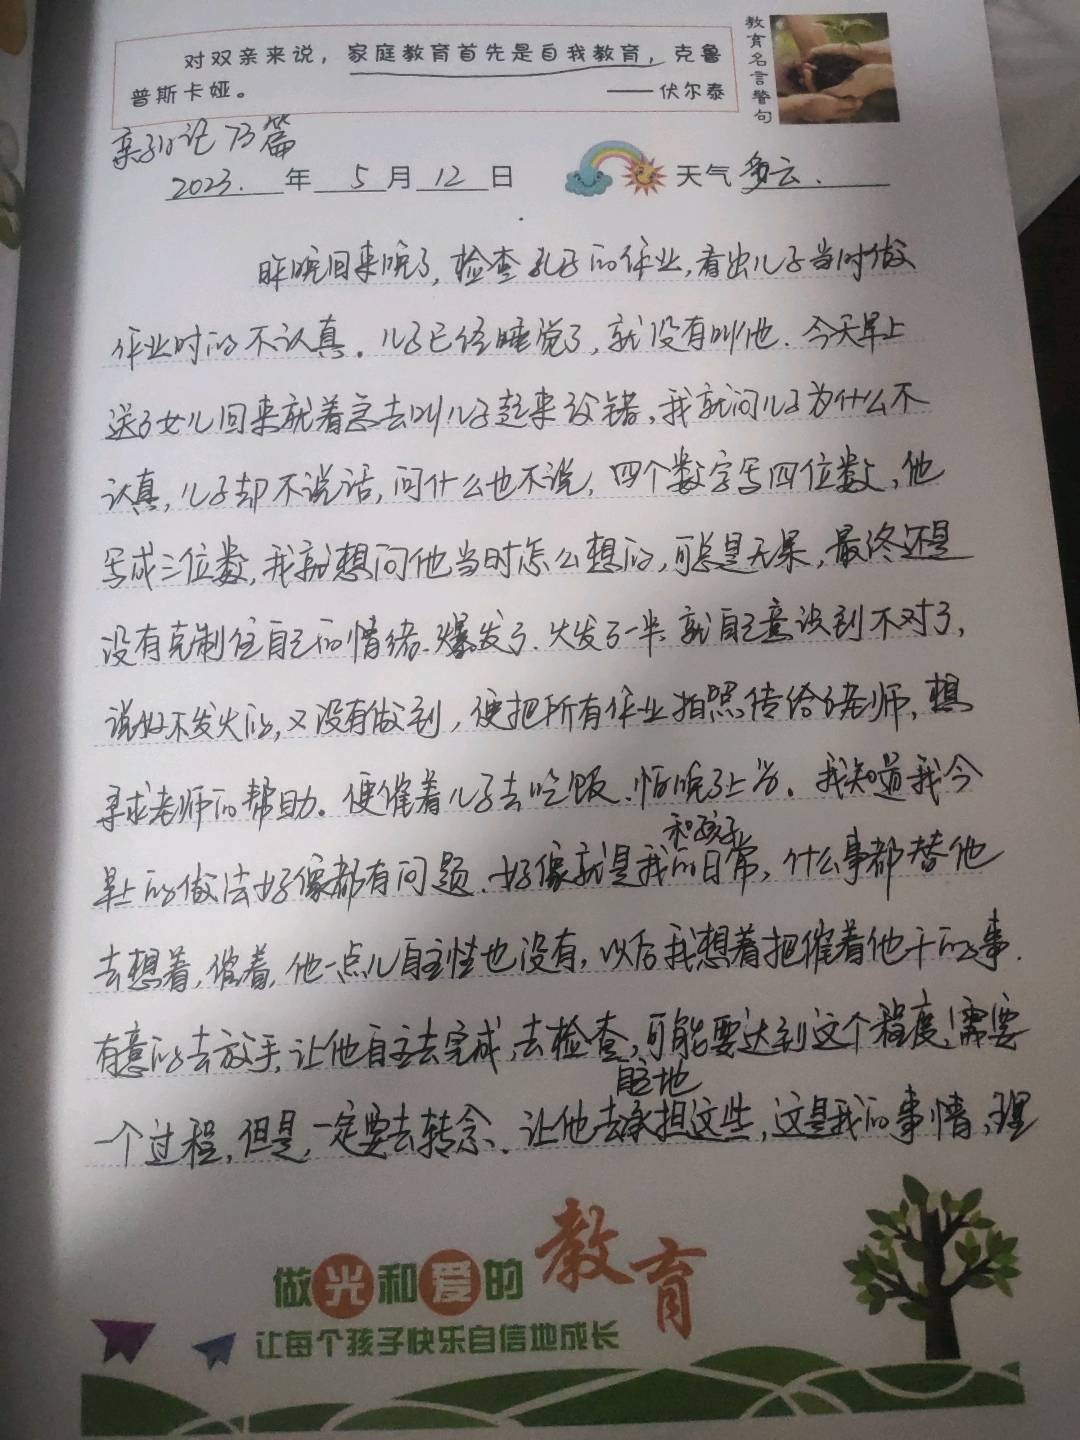 对双亲来说，家庭教育首先是自我教育，克鲁
普斯卡娅。 ——伏尔泰
教育名言警句
亲子日记73篇
2023.年5月12日 天气多云.
昨晚回来晚了,检查儿子的作业,看出儿子当时做
作业时的不认真。儿子已经睡觉了,就没有叫他.今天早上
送了女儿回来就着急去叫儿子起来改错,我就问儿子为什么不
认真,儿子却不说话,问什么也不说,四个数字写四位数,他
写成三位数,我就想问他当时怎么想的,可总是无果,最终还是
没有克制住自己的情绪.爆发了.火发了一半就自己意识到不对了,
说好不发火的,又没有做到,便把所有作业拍照传给了老师,想
寻求老师的帮助。便催着儿子去吃饭.怕晚了上学。我知道我今
早上的做法好像都有问题.好像就是我和孩子的日常,什么事都替他
去想着,催着,他一点儿自主性也没有,以后我想着把催着他干的事.
有意的去放手,让他自主去完成,去检查,可能要达到这个程度,需要
一个过程,但是,一定要去转念、让他去自主地承担这些,这是我的事情,理
做光和爱的教育
让每个孩子快乐自信地成长